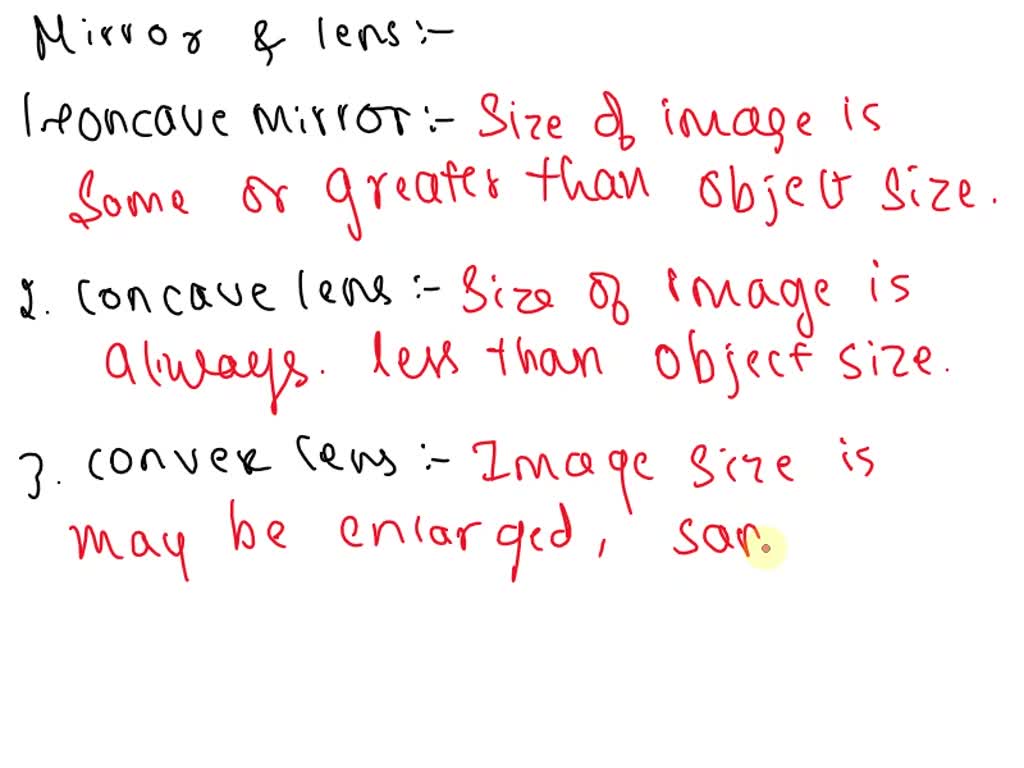 Mirror & lens:-
1. concave mirror:- Size of image is
Same or greater than object size.
2. concave lens:- Size of image is
always. less than object size.
3. convex lens:- Image size is
may be enlarged, sam